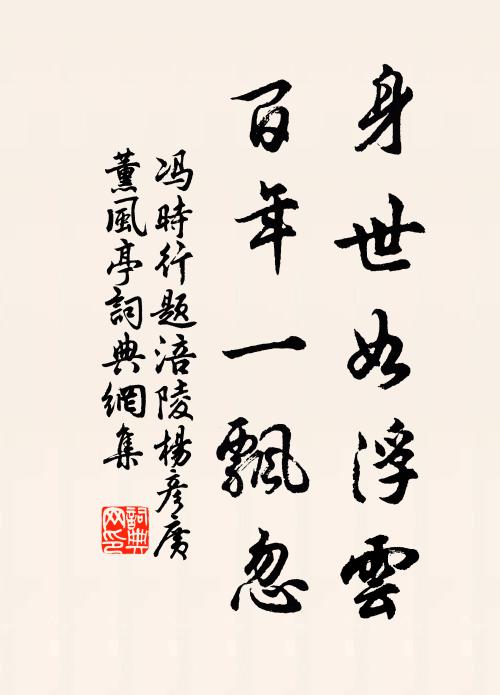 身世如浮雲
百年一飄忽
冯時行題涪陵楊彦廣
薰風亭詞典網集
詞典
网印